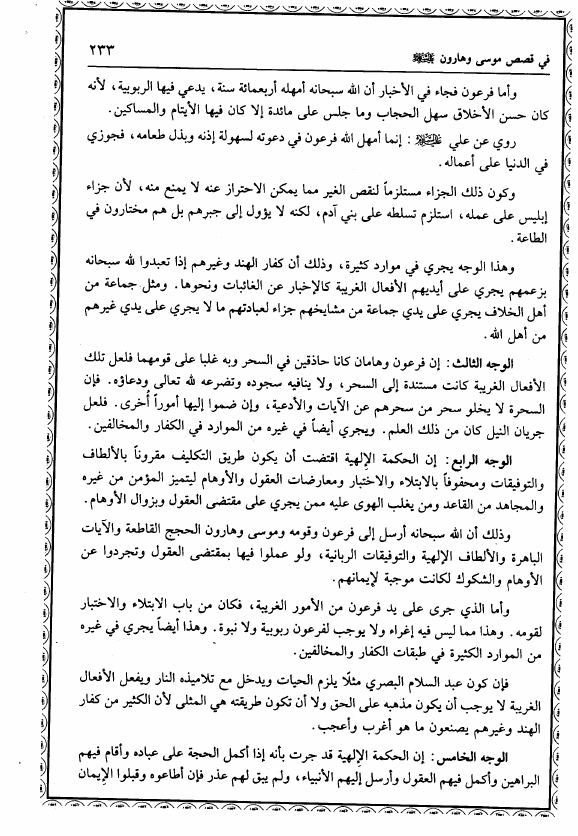 في قصص موسى وهارون ﷺ ٢٣٣
وأما فرعون فجاء في الأخبار أن الله سبحانه أمهله أربعمائة سنة، يدعي فيها الربوبية، لأنه
كان حسن الأخلاق سهل الحجاب وما جلس على مائدة إلا كان فيها الأيتام والمساكين.
روي عن علي : إنما أمهل الله فرعون في دعوته لسهولة إذنه وبذل طعامه، فجوزي
في الدنيا على أعماله.
وكون ذلك الجزاء مستلزماً لنقص الغير مما يمكن الاحتراز عنه لا يمنع منه، لأن جزاء
إبليس على عمله، استلزم تسلطه على بني آدم، لكنه لا يؤول إلى جبرهم بل هم مختارون في
الطاعة.
وهذا الوجه يجري في موارد كثيرة، وذلك أن كفار الهند وغيرهم إذا تعبدوا لله سبحانه
بزعمهم يجري على أيديهم الأفعال الغريبة كالإخبار عن الغائبات ونحوها. ومثل جماعة من
أهل الخلاف يجري على يدي جماعة من مشايخهم جزاء لعبادتهم ما لا يجري على يدي غيرهم
من أهل الله.
الوجه الثالث: إن فرعون وهامان كانا حاذقين في السحر وبه غلبا على قومهما فلعل تلك
الأفعال الغريبة كانت مستندة إلى السحر، ولا ينافيه سجوده وتضرعه لله تعالى ودعاؤه. فإن
السحرة لا يخلو سحر من سحرهم عن الآيات والأدعية، وإن ضموا إليها أموراً أُخرى. فلعل
جريان النيل كان من ذلك العلم. ويجري أيضاً في غيره من الموارد في الكفار والمخالفين.
الوجه الرابع: إن الحكمة الإلهية اقتضت أن يكون طريق التكليف مقروناً بالألطاف
والتوفيقات ومحفوفاً بالابتلاء والاختبار ومعارضات العقول والأوهام ليتميز المؤمن من غيره
والمجاهد من القاعد ومن يغلب الهوى عليه ممن يجري على مقتضى العقول وبزوال الأوهام.
وذلك أن الله سبحانه أرسل إلى فرعون وقومه وموسى وهارون الحجج القاطعة والآيات
الباهرة والألطاف الإلهية والتوفيقات الربانية، ولو عملوا فيها بمقتضى العقول وتجردوا عن
الأوهام والشكوك لكانت موجبة لإيمانهم.
وأما الذي جرى على يد فرعون من الأمور الغريبة، فكان من باب الابتلاء والاختبار
لقومه. وهذا مما ليس فيه إغراء ولا يوجب لفرعون ربوبية ولا نبوة. وهذا أيضاً يجري في غيره
من الموارد الكثيرة في طبقات الكفار والمخالفين.
فإن كون عبد السلام البصري مثلًا يلزم الحيات ويدخل مع تلاميذه النار ويفعل الأفعال
الغريبة لا يوجب أن يكون مذهبه على الحق ولا أن تكون طريقته هي المثلى لأن الكثير من كفار
الهند وغيرهم يصنعون ما هو أغرب وأعجب.
الوجه الخامس: إن الحكمة الإلهية قد جرت بأنه إذا أكمل الحجة على عباده وأقام فيهم
البراهين وأكمل فيهم العقول وأرسل إليهم الأنبياء، ولم يبق لهم عذر فإن أطاعوه وقبلوا الإيمان